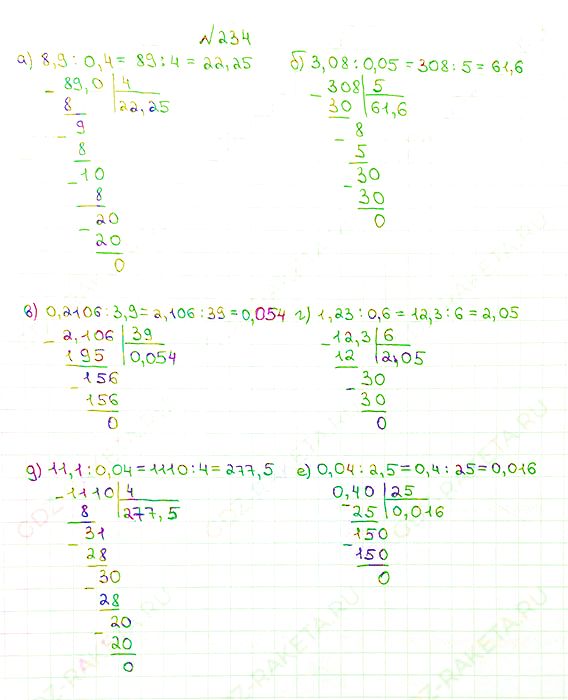 №234
а) 8,9 : 0,4 = 89 : 4 = 22,25
89,0 | 4
8 | 22,25
- 9
8
- 10
8
- 20
20
0
б) 3,08 : 0,05 = 308 : 5 = 61,6
- 308 | 5
30 | 61,6
- 8
5
- 30
30
0
в) 0,2106 : 3,9 = 2,106 : 39 = 0,054
- 2,106 | 39
195 | 0,054
- 156
156
0
г) 1,23 : 0,6 = 12,3 : 6 = 2,05
- 12,3 | 6
12 | 2,05
- 30
30
0
д) 11,1 : 0,04 = 1110 : 4 = 277,5
- 1110 | 4
8 | 277,5
- 31
28
- 30
28
- 20
20
0
е) 0,04 : 2,5 = 0,4 : 25 = 0,016
0,40 | 25
- 25 | 0,016
- 150
150
0